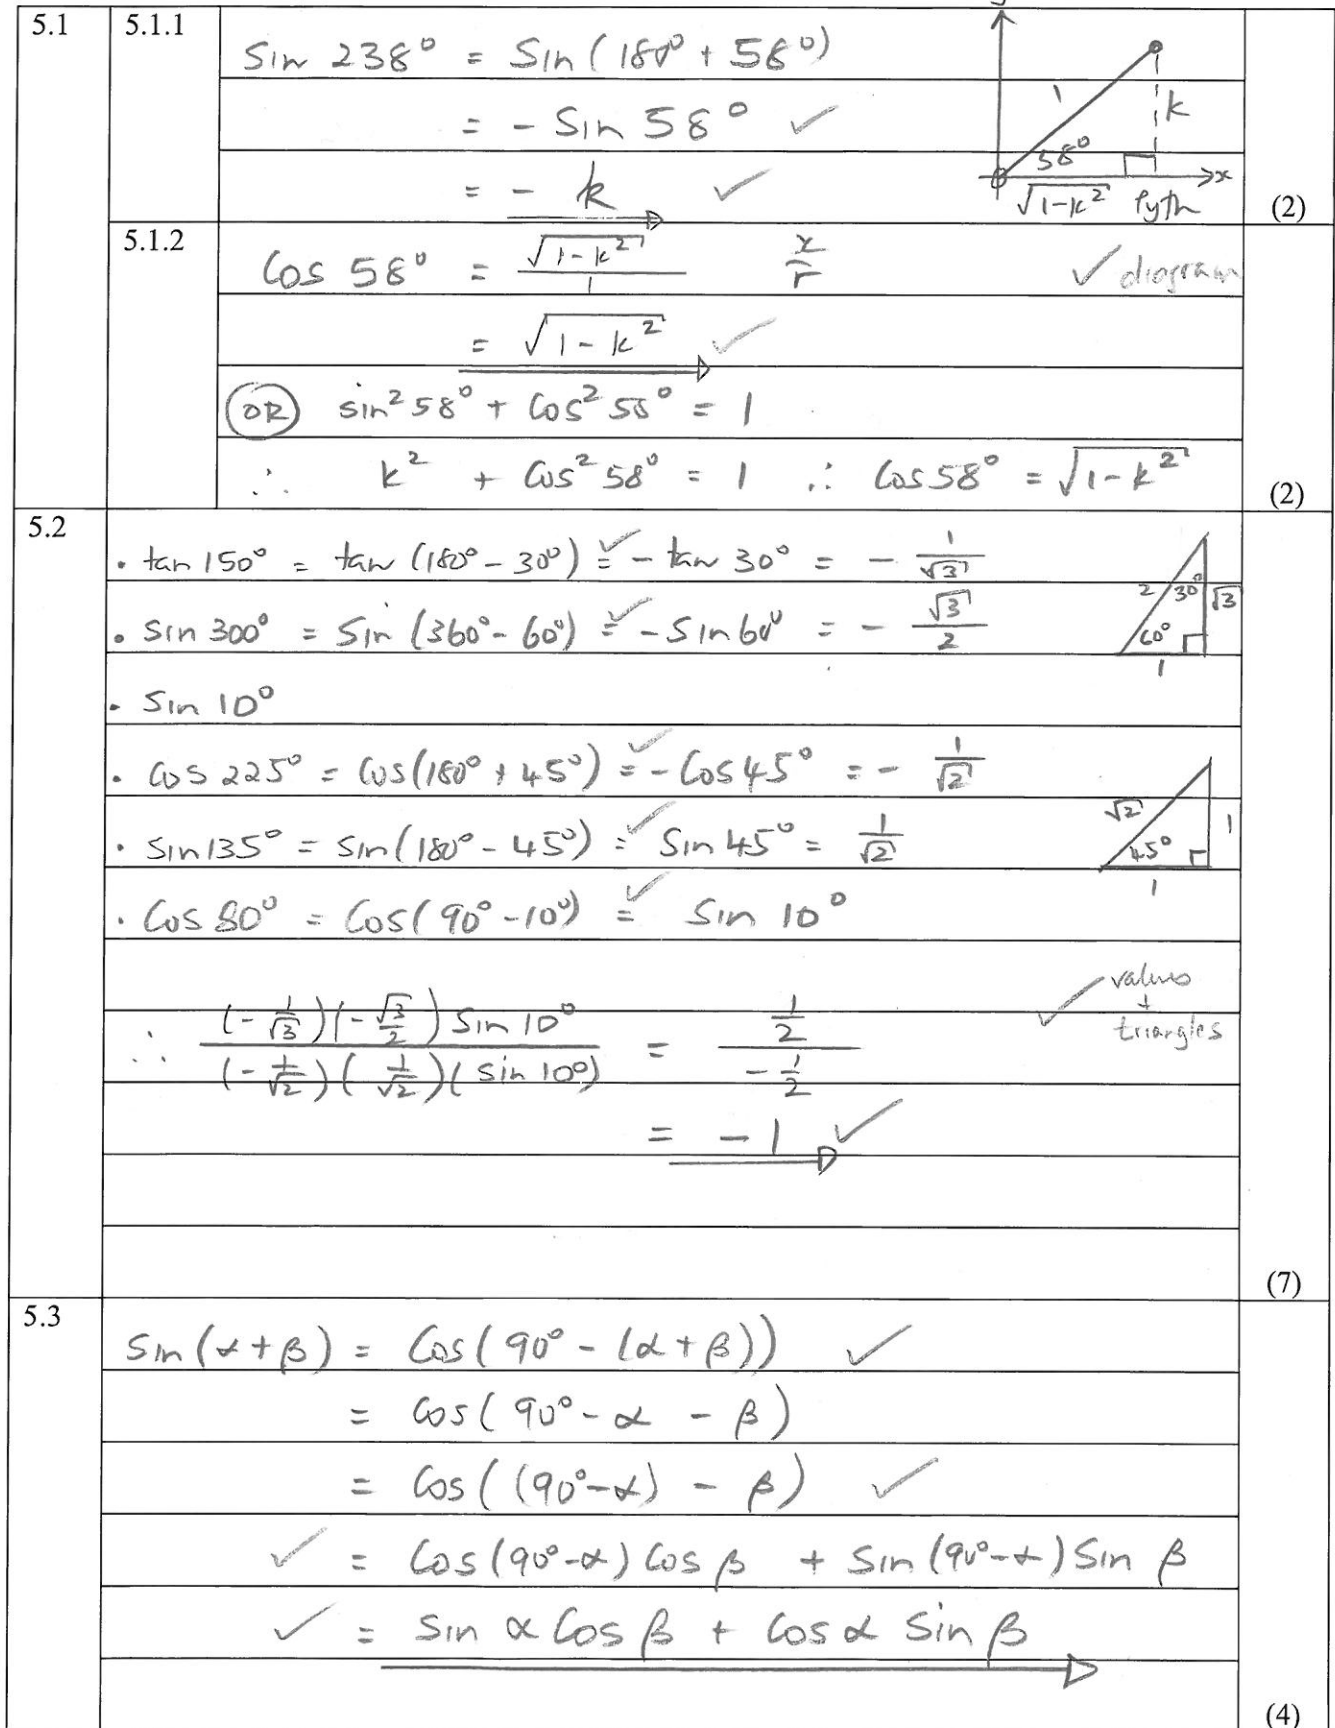 5.1 5.1.1
Sin 238° = Sin(180° + 58°)
= - Sin 58° ✓
= - k ✓
1
k
58°
√(1-k²) Pyth
x
(2)
5.1.2
Cos 58° = √(1-k²)/1 x/r ✓ diagram
= √(1-k²) ✓
OR sin²58° + Cos²58° = 1
∴ k² + Cos²58° = 1 ∴ Cos58° = √(1-k²)
(2)
5.2
• tan 150° = tan (180° - 30°) = ✓ - tan 30° = - 1/√3
• Sin 300° = Sin (360° - 60°) = ✓ - Sin 60° = - √3/2
2 30° √3
60°
1
• Sin 10°
• Cos 225° = Cos(180° + 45°) = ✓ - Cos 45° = - 1/√2
• Sin135° = Sin(180° - 45°) = ✓ Sin 45° = 1/√2
√2 1
45°
1
• Cos 80° = Cos(90° - 10°) = ✓ Sin 10°
∴ (-1/√3)(-√3/2) Sin 10° / (-1/√2)(1/√2)(Sin 10°) = 1/2 / -1/2
✓ values
+
triangles
= - 1 ✓
(7)
5.3
Sin(α+β) = Cos(90° - (α+β)) ✓
= Cos(90° - α - β)
= Cos((90°-α) - β) ✓
✓ = Cos(90°-α) Cos β + Sin(90°-α) Sin β
✓ = Sin α Cos β + Cos α Sin β
(4)